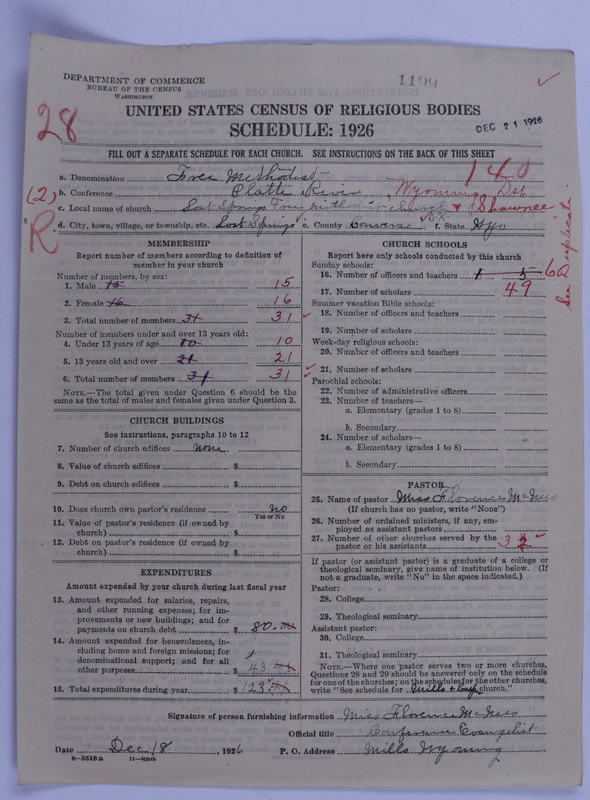 DEPARTMENT OF COMMERCE
BUREAU OF THE CENSUS
WASHINGTON
1199
UNITED STATES CENSUS OF RELIGIOUS BODIES
SCHEDULE: 1926
DEC 21 1926
28
FILL OUT A SEPARATE SCHEDULE FOR EACH CHURCH. SEE INSTRUCTIONS ON THE BACK OF THIS SHEET
a. Denomination Free Methodist 140
(2) b. Conference Platte River Wyoming Dist
c. Local name of church Lost Springs Free Methodist Church & Shawnee
R d. City, town, village, or township, etc. Lost Springs e. County Converse f. State Wyo
See Duplicate
MEMBERSHIP
Report number of members according to definition of
member in your church
Number of members, by sex:
1. Male 15 15
2. Female 16 16
3. Total number of members 31 31
Number of members under and over 13 years old:
4. Under 13 years of age 10 10
5. 13 years old and over 21 21
6. Total number of members 31 31
NOTE.—The total given under Question 6 should be the
same as the total of males and females given under Question 3.
CHURCH BUILDINGS
See instructions, paragraphs 10 to 12
7. Number of church edifices none
8. Value of church edifices $
9. Debt on church edifices $
10. Does church own pastor's residence no
Yes or No
11. Value of pastor's residence (if owned by
church) $
12. Debt on pastor's residence (if owned by
church) $
EXPENDITURES
Amount expended by your church during last fiscal year
13. Amount expended for salaries, repairs,
and other running expenses; for im-
provements or new buildings; and for
payments on church debt $ 80.00
14. Amount expended for benevolences, in-
cluding home and foreign missions; for
denominational support; and for all
other purposes $ 43
15. Total expenditures during year $ 123
CHURCH SCHOOLS
Report here only schools conducted by this church
Sunday schools:
16. Number of officers and teachers 1 5 6
17. Number of scholars 49
Summer vacation Bible schools:
18. Number of officers and teachers
19. Number of scholars
Week-day religious schools:
20. Number of officers and teachers
21. Number of scholars
Parochial schools:
22. Number of administrative officers
23. Number of teachers—
a. Elementary (grades 1 to 8)
b. Secondary
24. Number of scholars—
a. Elementary (grades 1 to 8)
b. Secondary
PASTOR
25. Name of pastor Miss Florence McNees
(If church has no pastor, write "None")
26. Number of ordained ministers, if any, em-
ployed as assistant pastors
27. Number of other churches served by the
pastor or his assistants 3
If pastor (or assistant pastor) is a graduate of a college or
theological seminary, give name of institution below. (If
not a graduate, write "No" in the space indicated.)
Pastor:
28. College
29. Theological seminary
Assistant pastor:
30. College
31. Theological seminary
NOTE.—Where one pastor serves two or more churches,
Questions 28 and 29 should be answered only on the schedule
for one of the churches; on the schedules for the other churches,
write "See schedule for Mills & church."
Signature of person furnishing information Miss Florence McNees
Official title Conference Evangelist
Date Dec 18, 1926 P. O. Address Mills Wyoming
8—5518a 11—9024b